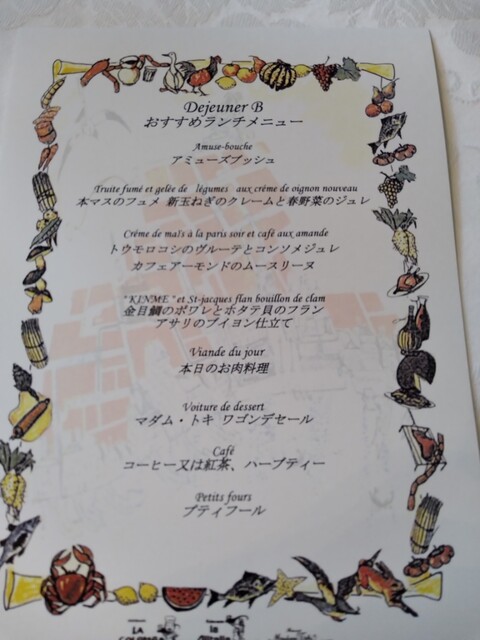 Dejeuner B
おすすめランチメニュー
Amuse-bouche
アミューズブッシュ
Truite fumé et gelée de légumes aux créme de oignon nouveau
本マスのフュメ 新玉ねぎのクレームと春野菜のジュレ
Créme de maïs à la paris soir et café aux amande
トウモロコシのヴルーテとコンソメジュレ
カフェアーモンドのムースリーヌ
" KINME " et St-jacques flan bouillon de clam
金目鯛のポワレとホタテ貝のフラン
アサリのブイヨン仕立て
Viande du jour
本日のお肉料理
Voiture de dessert
マダム・トキ ワゴンデセール
Café
コーヒー又は紅茶、ハーブティー
Petits fours
プティフール
LA
la